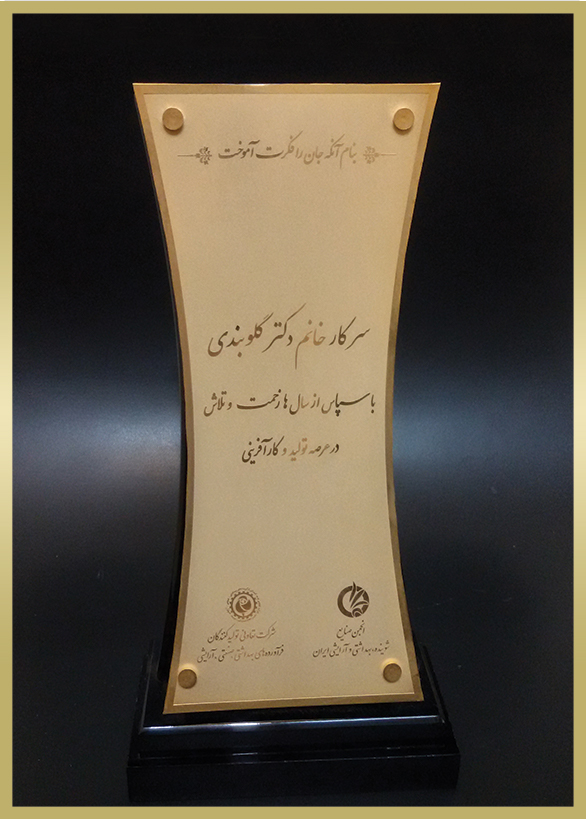 بنام آنکه جان را فکرت آموخت
سرکار خانم دکتر گلوبندی
با سپاس از سال ها زحمت و تلاش
در عرصه تولید و کارآفرینی
انجمن صنایع
شوینده، بهداشتی و آرایشی ایران
شرکت تعاونی تولیدکنندگان
فرآورده‌های بهداشتی، صنعتی، آرایشی